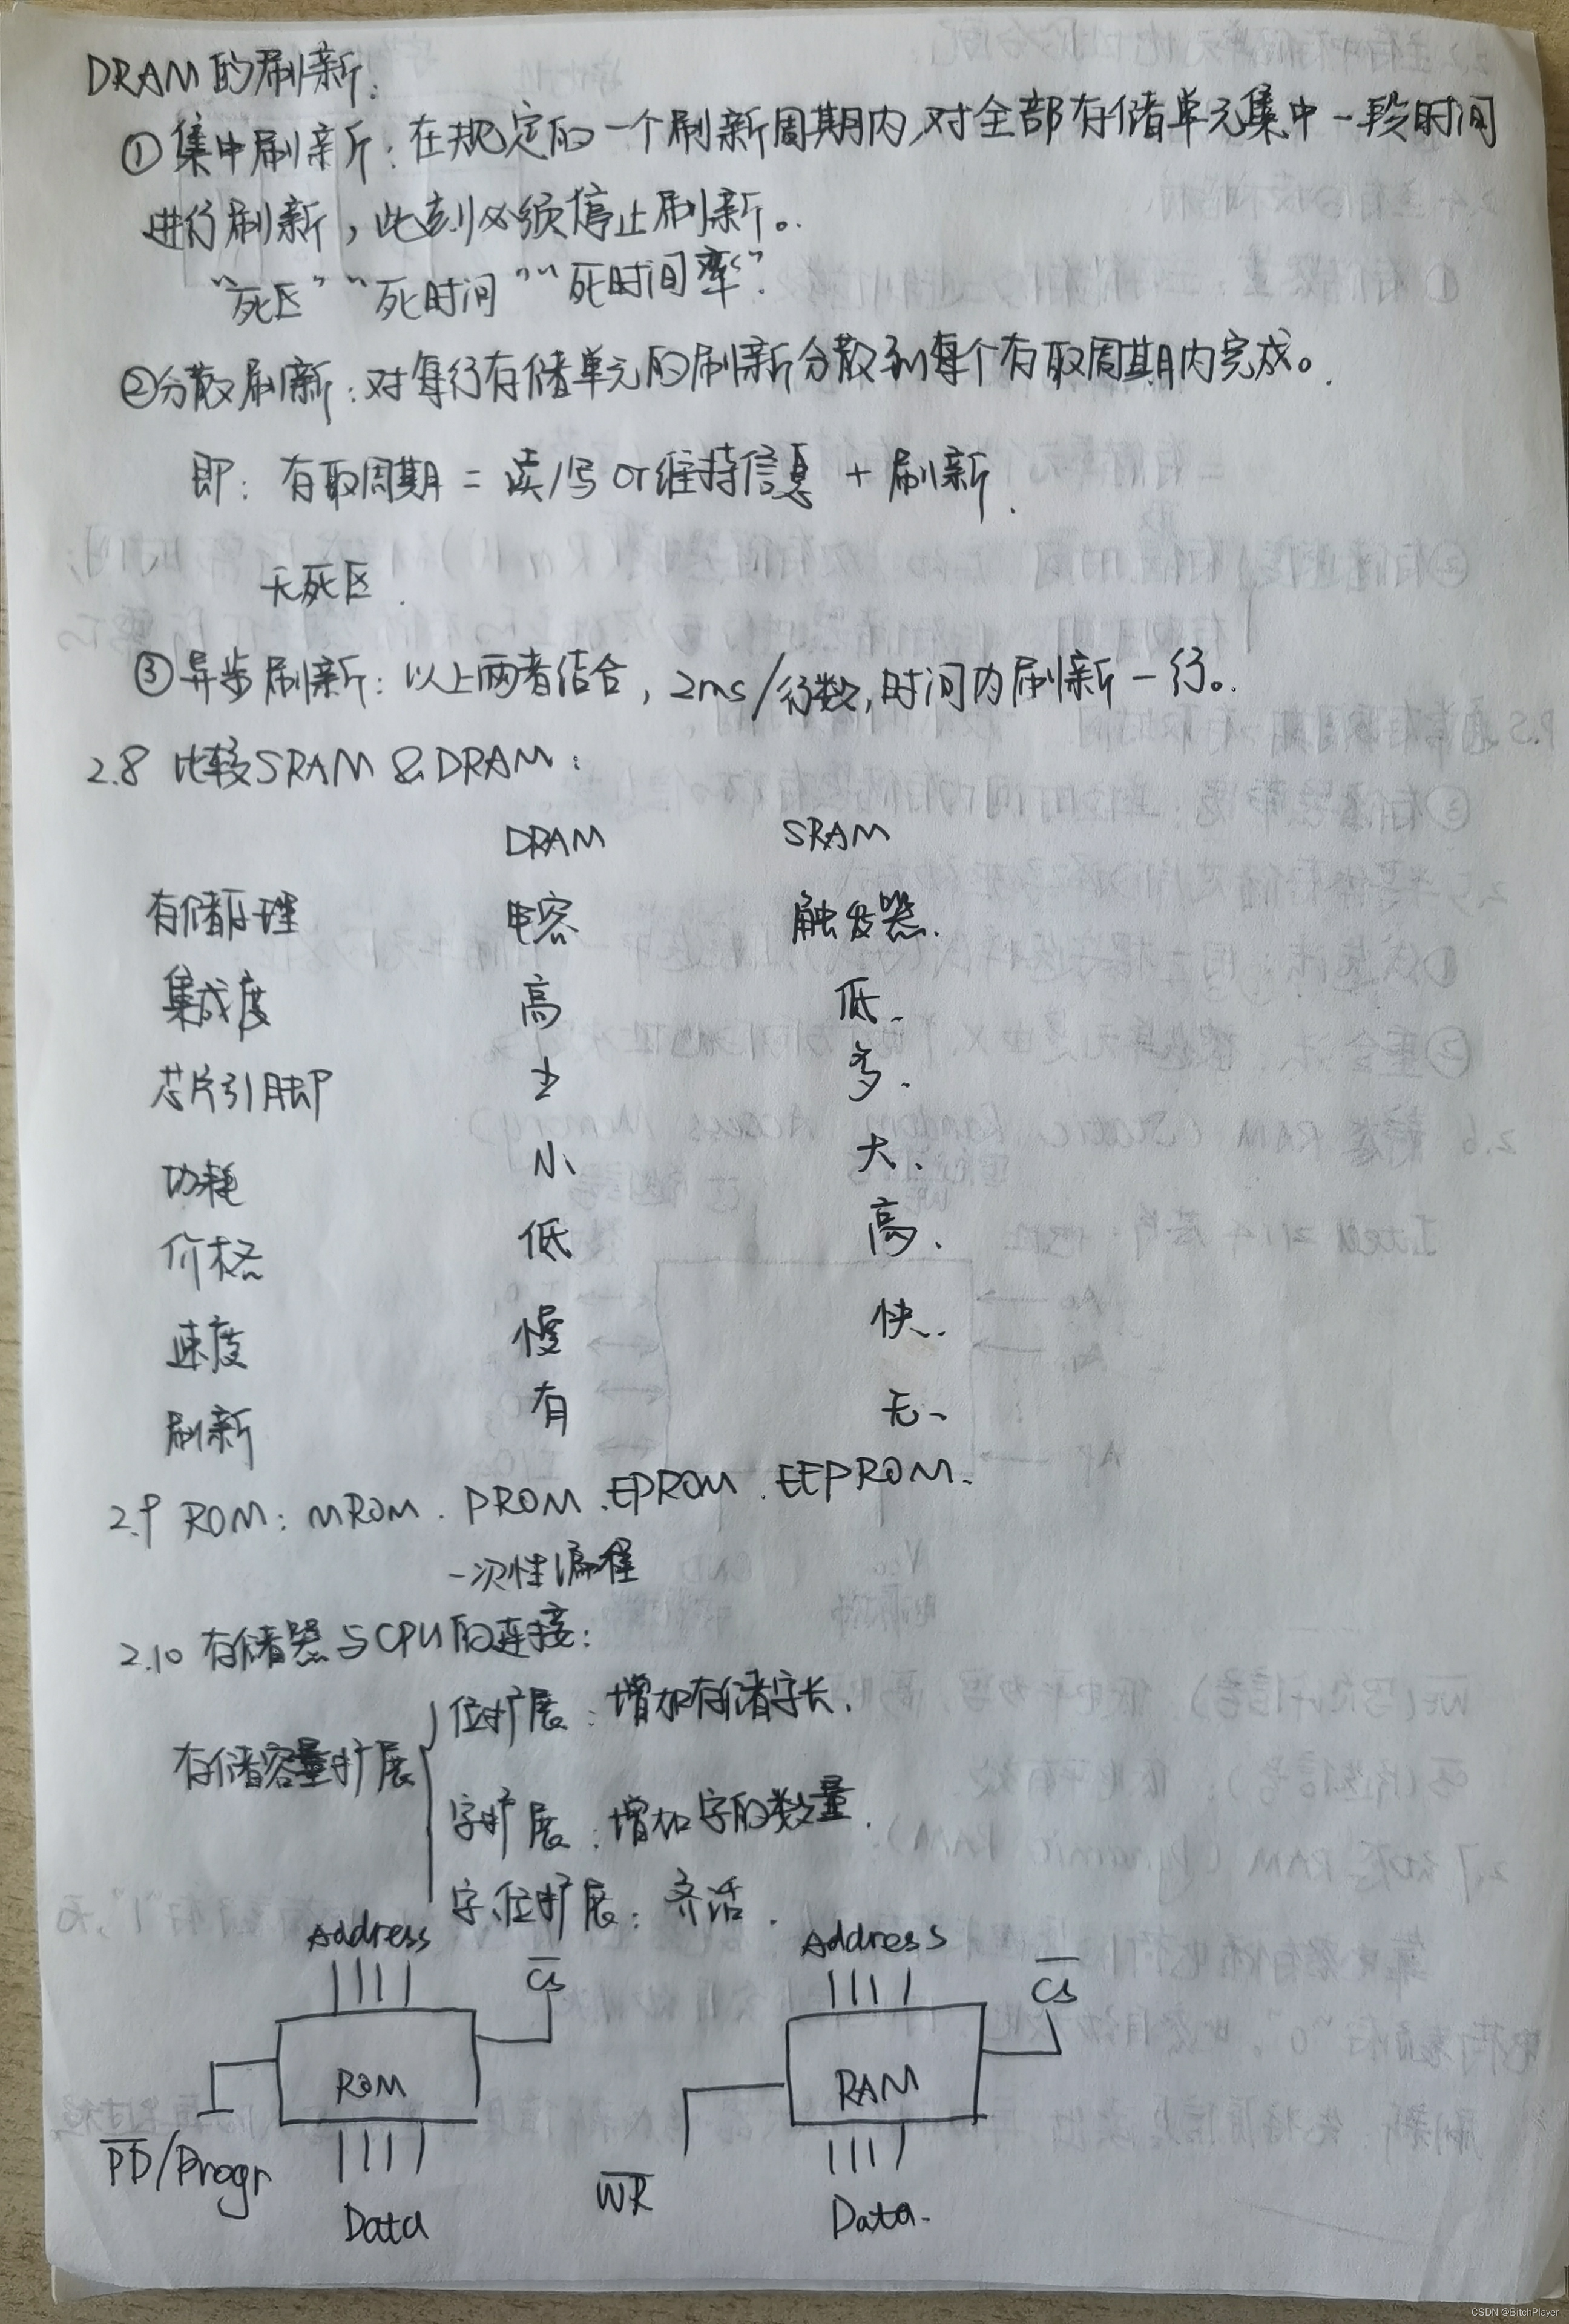 DRAM的刷新:
①集中刷新:在规定的一个刷新周期内,对全部存储单元集中一段时间
进行刷新,此刻必须停止刷新。
“死区”“死时间”“死时间率”.
②分散刷新:对每行存储单元的刷新分散到每个存取周期内完成。
即:存取周期 = 读/写 or 维持信息 + 刷新.
无死区.
③异步刷新:以上两者结合,2ms/行数,时间为刷新一行。
2.8 比较SRAM & DRAM:
DRAM SRAM
存储原理 电容 触发器.
集成度 高 低.
芯片引脚 多.
功耗 小 大.
价格 低 高.
速度 慢 快.
刷新 有 无.
2.9 ROM: MROM. PROM. EPROM. EEPROM.
一次性编程
2.10 存储器与CPU的连接:
位扩展:增加存储字长.
存储容量扩展
字扩展:增加字的数量.
字、位扩展:齐活.
Address CS Address CS
ROM RAM
PD/Progr WR
Data Data.
CSDN @BitchPlayer